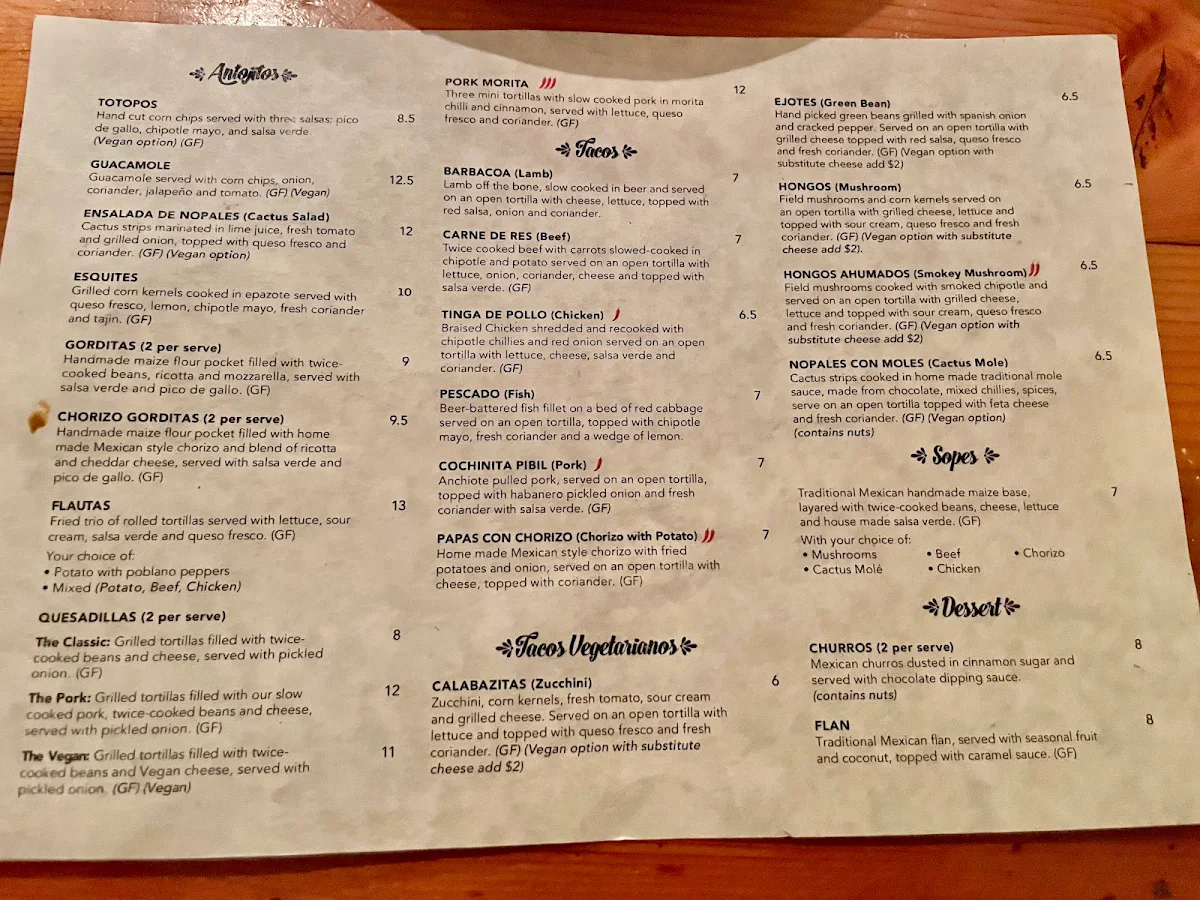 Antojitos
TOTOPOS
Hand cut corn chips served with three salsas: pico 8.5
de gallo, chipotle mayo, and salsa verde.
(Vegan option) (GF)
GUACAMOLE
Guacamole served with corn chips, onion, 12.5
coriander, jalapeño and tomato. (GF) (Vegan)
ENSALADA DE NOPALES (Cactus Salad)
Cactus strips marinated in lime juice, fresh tomato 12
and grilled onion, topped with queso fresco and
coriander. (GF) (Vegan option)
ESQUITES
Grilled corn kernels cooked in epazote served with 10
queso fresco, lemon, chipotle mayo, fresh coriander
and tajin. (GF)
GORDITAS (2 per serve)
Handmade maize flour pocket filled with twice- 9
cooked beans, ricotta and mozzarella, served with
salsa verde and pico de gallo. (GF)
CHORIZO GORDITAS (2 per serve) 9.5
Handmade maize flour pocket filled with home
made Mexican style chorizo and blend of ricotta
and cheddar cheese, served with salsa verde and
pico de gallo. (GF)
FLAUTAS 13
Fried trio of rolled tortillas served with lettuce, sour
cream, salsa verde and queso fresco. (GF)
Your choice of:
• Potato with poblano peppers
• Mixed (Potato, Beef, Chicken)
QUESADILLAS (2 per serve)
The Classic: Grilled tortillas filled with twice- 8
cooked beans and cheese, served with pickled
onion. (GF)
The Pork: Grilled tortillas filled with our slow 12
cooked pork, twice-cooked beans and cheese,
served with pickled onion. (GF)
The Vegan: Grilled tortillas filled with twice- 11
cooked beans and Vegan cheese, served with
pickled onion. (GF) (Vegan)
PORK MORITA 12
Three mini tortillas with slow cooked pork in morita
chilli and cinnamon, served with lettuce, queso
fresco and coriander. (GF)
Tacos
BARBACOA (Lamb) 7
Lamb off the bone, slow cooked in beer and served
on an open tortilla with cheese, lettuce, topped with
red salsa, onion and coriander.
CARNE DE RES (Beef) 7
Twice cooked beef with carrots slowed-cooked in
chipotle and potato served on an open tortilla with
lettuce, onion, coriander, cheese and topped with
salsa verde. (GF)
TINGA DE POLLO (Chicken) 6.5
Braised Chicken shredded and recooked with
chipotle chillies and red onion served on an open
tortilla with lettuce, cheese, salsa verde and
coriander. (GF)
PESCADO (Fish) 7
Beer-battered fish fillet on a bed of red cabbage
served on an open tortilla, topped with chipotle
mayo, fresh coriander and a wedge of lemon.
COCHINITA PIBIL (Pork) 7
Anchiote pulled pork, served on an open tortilla,
topped with habanero pickled onion and fresh
coriander with salsa verde. (GF)
PAPAS CON CHORIZO (Chorizo with Potato) 7
Home made Mexican style chorizo with fried
potatoes and onion, served on an open tortilla with
cheese, topped with coriander. (GF)
Tacos Vegetarianos
CALABAZITAS (Zucchini) 6
Zucchini, corn kernels, fresh tomato, sour cream
and grilled cheese. Served on an open tortilla with
lettuce and topped with queso fresco and fresh
coriander. (GF) (Vegan option with substitute
cheese add $2)
EJOTES (Green Bean) 6.5
Hand picked green beans grilled with spanish onion
and cracked pepper. Served on an open tortilla with
grilled cheese topped with red salsa, queso fresco
and fresh coriander. (GF) (Vegan option with
substitute cheese add $2)
HONGOS (Mushroom) 6.5
Field mushrooms and corn kernels served on
an open tortilla with grilled cheese, lettuce and
topped with sour cream, queso fresco and fresh
coriander. (GF) (Vegan option with substitute
cheese add $2).
HONGOS AHUMADOS (Smokey Mushroom) 6.5
Field mushrooms cooked with smoked chipotle and
served on an open tortilla with grilled cheese,
lettuce and topped with sour cream, queso fresco
and fresh coriander. (GF) (Vegan option with
substitute cheese add $2)
NOPALES CON MOLES (Cactus Mole) 6.5
Cactus strips cooked in home made traditional mole
sauce, made from chocolate, mixed chillies, spices,
serve on an open tortilla topped with feta cheese
and fresh coriander. (GF) (Vegan option)
(contains nuts)
Sopes
Traditional Mexican handmade maize base, 7
layared with twice-cooked beans, cheese, lettuce
and house made salsa verde. (GF)
With your choice of:
• Mushrooms • Beef • Chorizo
• Cactus Molé • Chicken
Dessert
CHURROS (2 per serve) 8
Mexican churros dusted in cinnamon sugar and
served with chocolate dipping sauce.
(contains nuts)
FLAN 8
Traditional Mexican flan, served with seasonal fruit
and coconut, topped with caramel sauce. (GF)